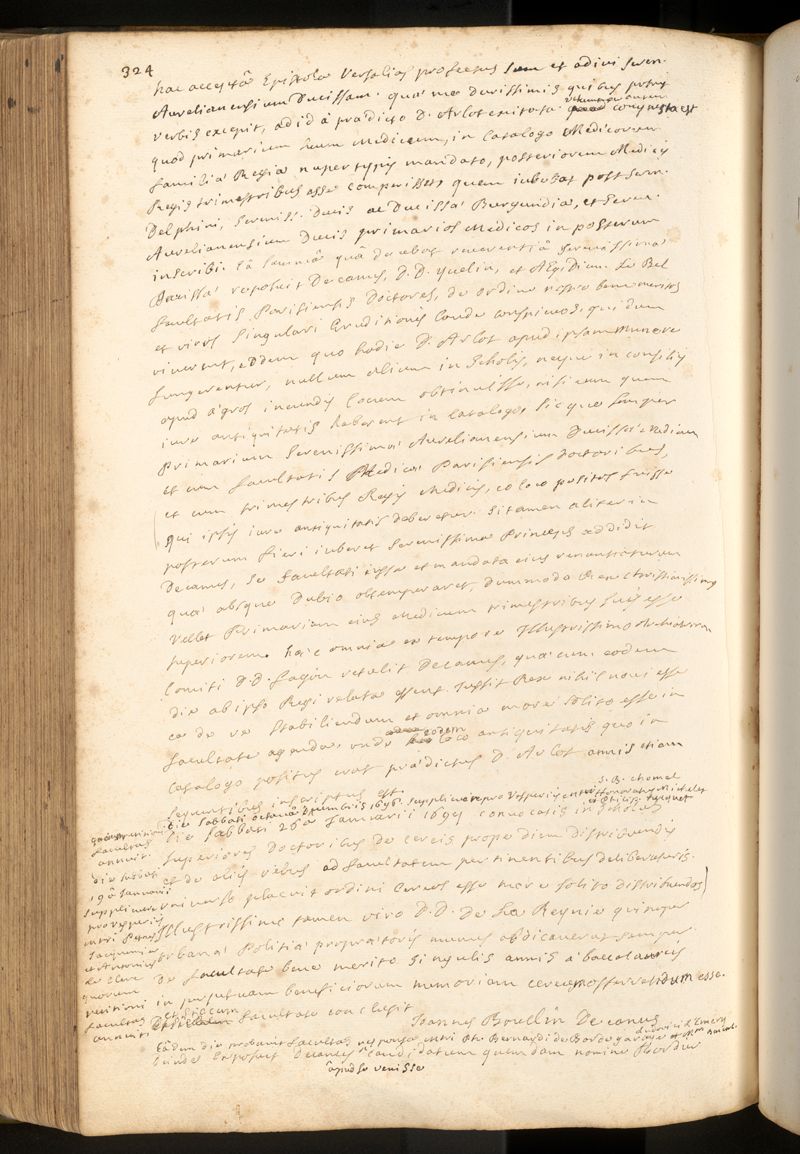 324
hac acceptâ Epistolâ Versalias profectus sum et adivi seren.
Aurelianensium Ducissam. quæ me Devissimis quibus potuit
verbis excepit, ad id à prædicto D. Arlot excitata conquesta est
quod primarium suum Medicum, in Catalogo Medicorum
familiæ Regiæ nuper typis mandato, posteriorem Medicis
Regis trimestribus esse comperisset quem iubebat post seren.
Delphini, sereniss. Ducis ac Ducissæ Burgundiæ, et seren.
Aurelianensium Ducis primarios Medicos in posterum
inscribi. Eâ summâ quâ debebat reverentiâ serenissimæ
Ducissæ reposuit Decanus, D.D. yvelin, et Ægidium Le Bel
facultatis Parisiensis Doctores, de ordine nostro bene meritos
et viros singulari Eruditionis laude conspicuos, qui dum
viverent, eodem quo hodie D. Arlot apud ipsam munere
fungerentur, nullum alium in Scholis, neque in consiliis
apud ægros ineundis locum obtinuisse, nisi eum quem
iure antiquitatis haberent in Catalogo, sicque semper
Primarium serenissimæ Aurelianensium Ducissæ Medicum
et cum facultatis Medicæ Parisiensis doctoribus,
et cum trimestribus Regis Medicis, eo loco positos fuisse
qui ipsis iure antiquitatis deberetur. si tamen aliter in
posterum fieri iuberet serenissima Princeps addidit
Decanus, se facultati iussa et mandata eius renuntiaturum
quæ absque dubio obtemperaret, dummodo Rex Christianissimus
vellet Primarium eius Medicum trimestribus suis esse
superiorem. hæc omnia ex tempore Illustrissimo Archiatron
Comiti D.D. fagon retulit Decanus, quæ cum eodem
die ab ipso Regi relata essent. Jussit Rex nihil novi esse
ea de re stabiliendum et omnia more solito esse in
facultate agenda, unde eodem loco antiquitatis quo in
Catalogo positus erat prædictus D. Arlot annis etiam
sequentibus inscriptus est.
S. B. chomel
Honoratus Michelet
et Philip. hecquet
die sabbati octava Decembris 1696. supplicuere pro Vesperiis
die sabbati 26a Januarii 1697 convocatis in Scholas
superiores doctoribus de cereis propediem distribuendis
et de aliis rebus ad facultatem pertinentibus deliberaturis.
universo placuit ordini cereos esse more solito distribuendos
Illustrissimo tamen viro D.D. de La Reynie qui nuper
urbanæ Politiæ propraetoris munus abdicaverat semper
de facultate bene merito singulis annis a baccalaureis
in perpetuam beneficiorum memoriam cereum offerendum esse.
et sic cum facultate conclusit
facultas
annuit.
die sabbati
19a Januarii
supplicuere
pro vesperiis
mtri Petrus
Jacquemier
et Antonius
Le Clerc
quorum
petitioni
facultas
annuit
Joannes Boudin Decanus
Eâdem die probavit facultas responsa mtri Bernardi de Bordegaraye
Deinde exposuit Decanus candidatum quemdam nomine
apud se venisse